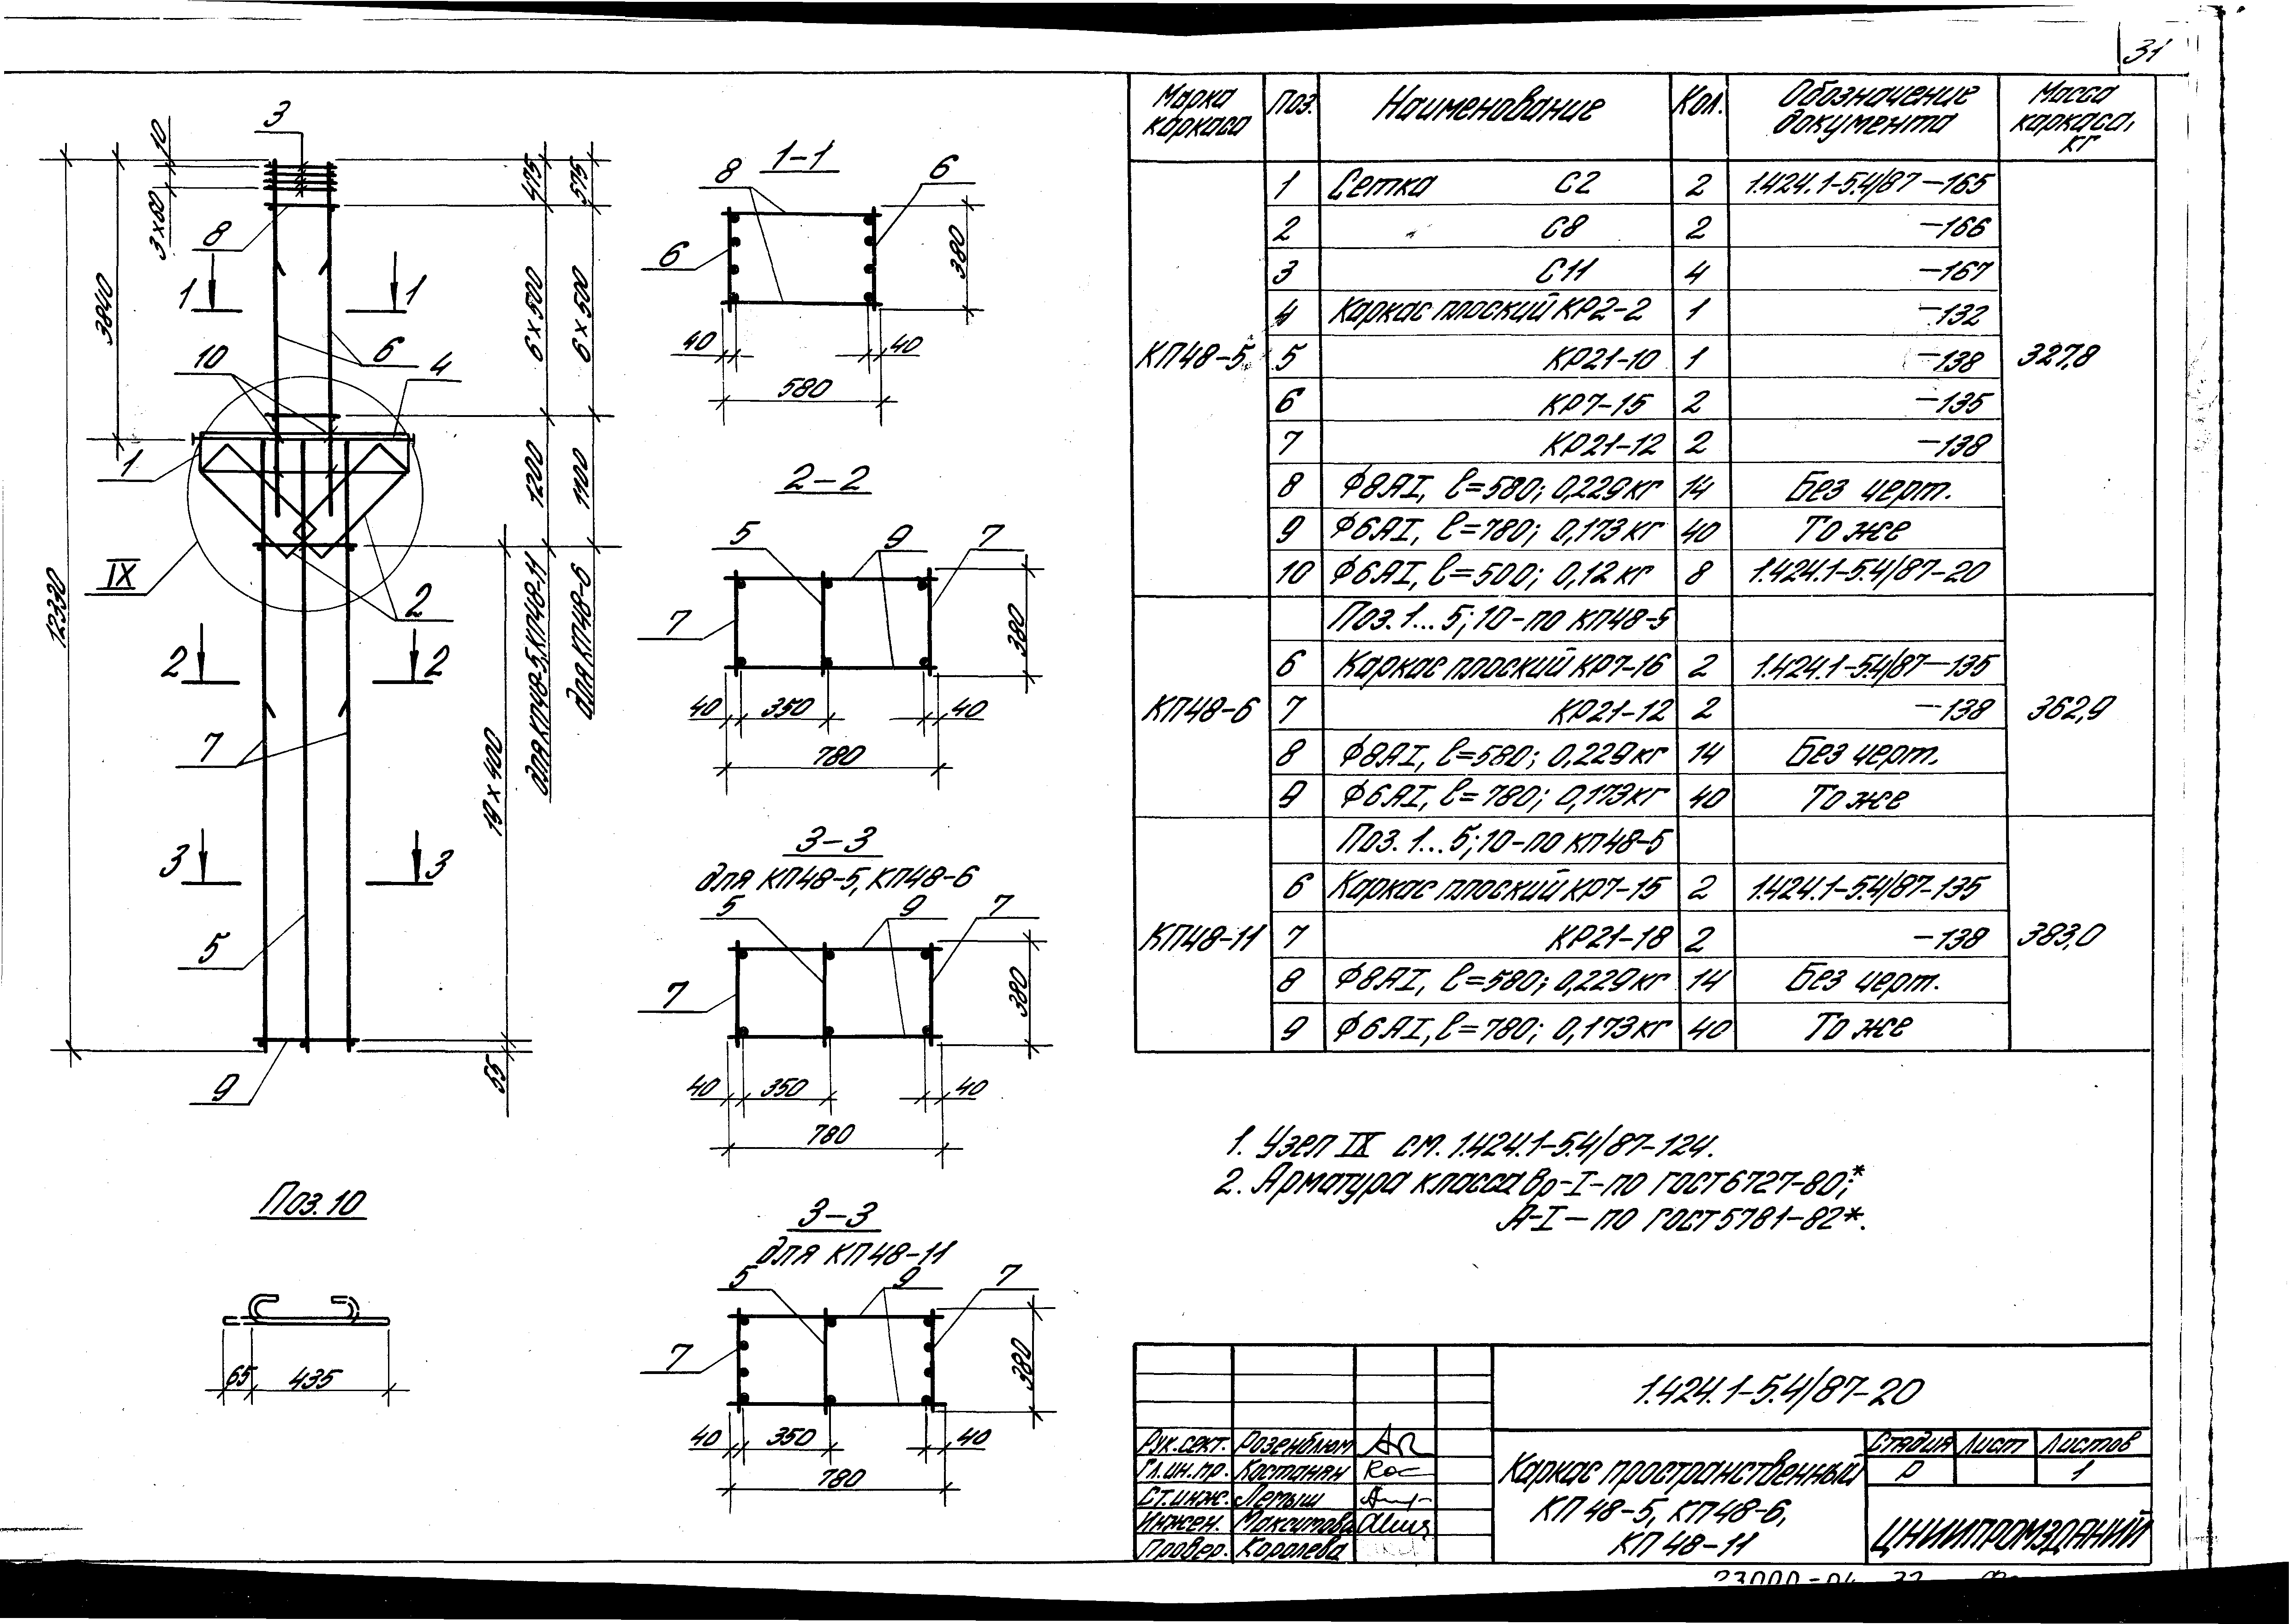 31
3
10
3×60
8
1 1
3840
10
6
4
1
IX
2
12330
2 2
7
3 3
5
9
475
575
6×500
6×500
1200
1100
для КП48-5, КП48-11
для КП48-6
19×400
55
Поз.10
65 435
1-1
8
6
6
380
40 40
580
2-2
5 9 7
7
380
40 350 40
780
3-3
для КП48-5, КП48-6
5 9 7
7
380
40 350 40
780
3-3
для КП48-11
5 9 7
7
380
40 350 40
780
Марка каркаса Поз. Наименование Кол. Обозначение документа Масса каркаса, кг
КП48-5 327,8
1 Сетка С2 2 1.424.1-5.4/87-165
2 С8 2 -166
3 С11 4 -167
4 Каркас плоский КР2-2 1 -132
5 КР21-10 1 -138
6 КР7-15 2 -135
7 КР21-12 2 -138
8 Ф8АI, ℓ=580; 0,229кг 14 Без черт.
9 Ф6АI, ℓ=780; 0,173кг 40 То же
10 Ф6АI, ℓ=500; 0,12кг 8 1.424.1-5.4/87-20
КП48-6 362,9
Поз.1...5;10-по КП48-5
6 Каркас плоский КР7-16 2 1.424.1-5.4/87-135
7 КР21-12 2 -138
8 Ф8АI, ℓ=580; 0,229кг 14 Без черт.
9 Ф6АI, ℓ=780; 0,173кг 40 То же
КП48-11 383,0
Поз.1...5;10-по КП48-5
6 Каркас плоский КР7-15 2 1.424.1-5.4/87-135
7 КР21-18 2 -138
8 Ф8АI, ℓ=580; 0,229кг 14 Без черт.
9 Ф6АI, ℓ=780; 0,173кг 40 То же
1. Узел IX см. 1.424.1-5.4/87-124.
2. Арматура класса Вр-I-по ГОСТ 6727-80;*
А-I-по ГОСТ 5781-82*.
1.424.1-5.4/87-20
Рук.сект. Розенблюм
Гл.ин.пр. Костанян
Ст.инж. Летыш
Инжен. Макситова
Провер. Королева
Каркас пространственный
КП 48-5, КП48-6,
КП 48-11
Стадия Лист Листов
Р 1
ЦНИИПРОМЗДАНИЙ